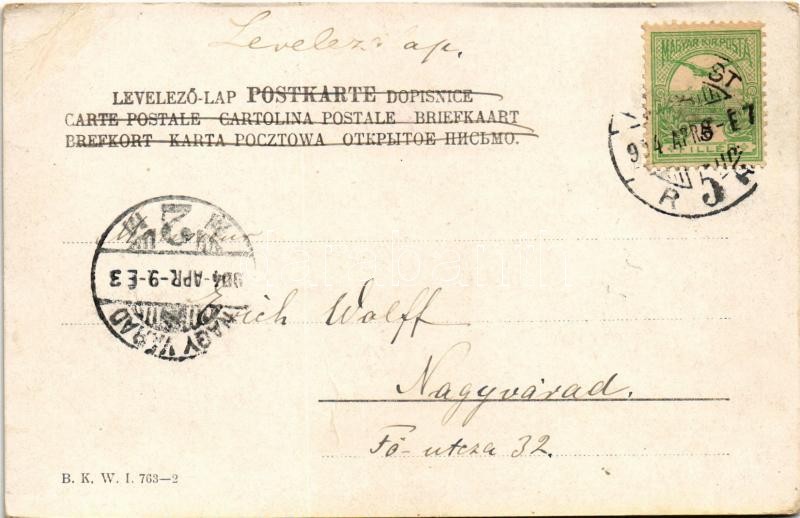 Levelező lap.
LEVELEZŐ-LAP POSTKARTE DOPISNICE
CARTE POSTALE – CARTOLINA POSTALE BRIEFKAART
BREFKORT – KARTA POCZTOWA – ОТКРЫТОЕ ПИСЬМО.
MAGYAR KIR. POSTA
904 APR 8 – E 7
NAGYVÁRAD
904 – APR – 9 – É 3
Erich Wolff
Nagyvárad.
Fő-utcza 32.
B. K. W. I. 763–2